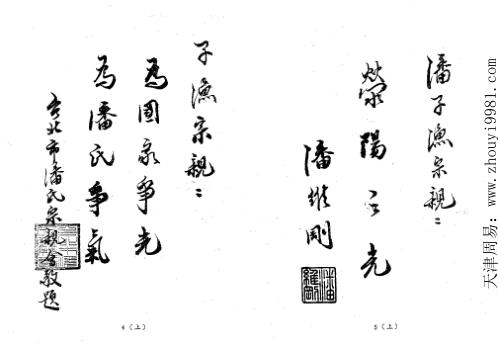 潘子漁宗親:
滎陽之光
潘維剛
潘維剛
5(上)
子漁宗親:
為國家爭光
為潘氏爭氣
台北市潘氏宗親會敬題
4(上)
天津周易：www.zhouyi9981.com